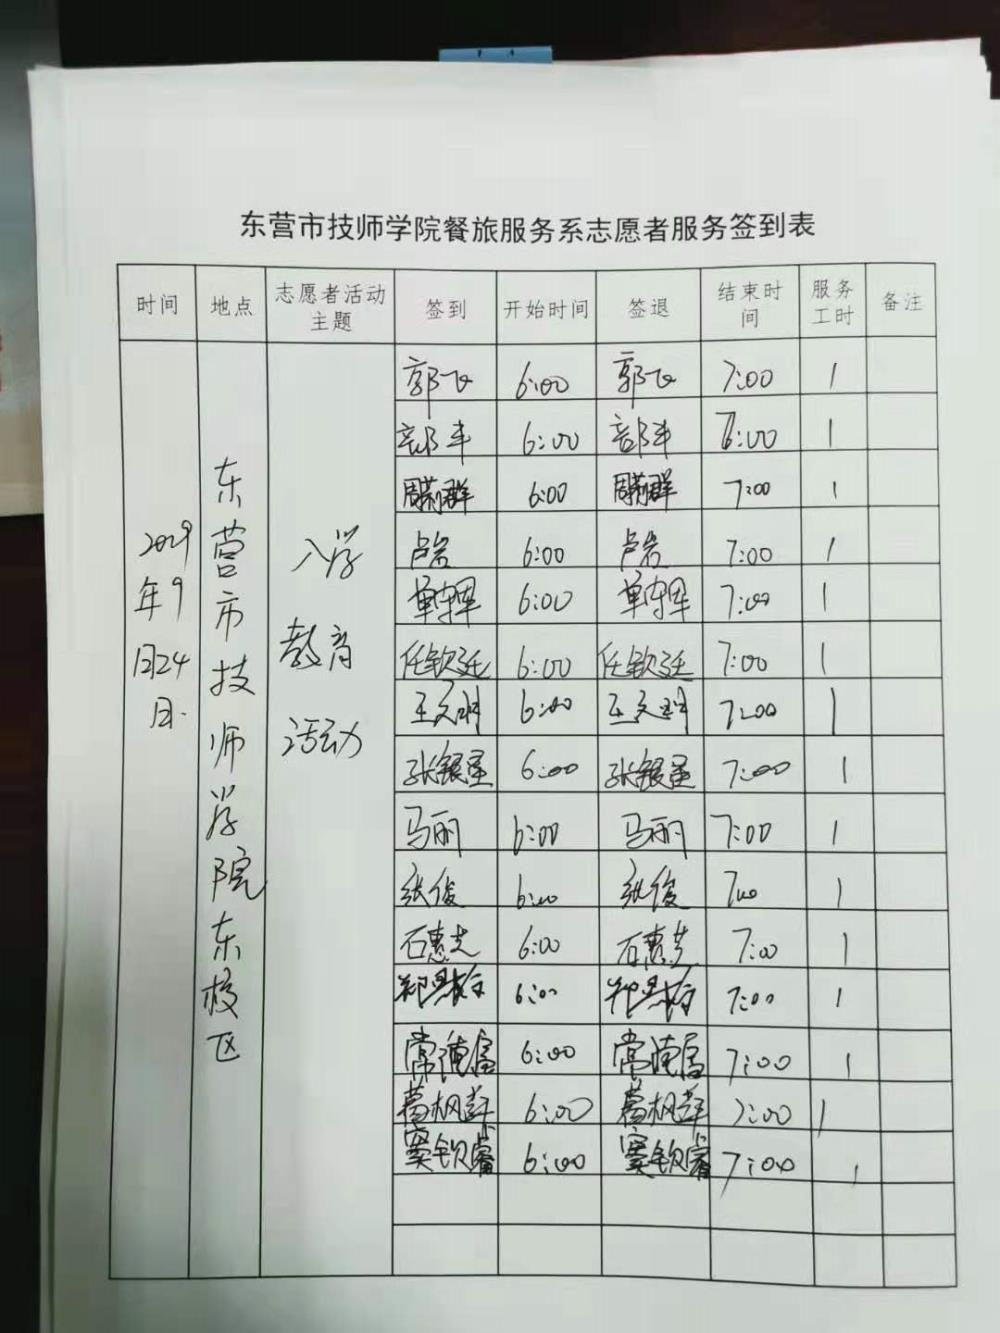 东营市技师学院餐旅服务系志愿者服务签到表
时间 地点 志愿者活动主题 签到 开始时间 签退 结束时间 服务工时 备注
2019年9月24日.
东营市技师学院东校区
入学教育活动
郭飞 6:00 郭飞 7:00 1
部丰 6:00 部丰 7:00 1
周菊群 6:00 周菊群 7:00 1
卢岩 6:00 卢岩 7:00 1
单守军 6:00 单守军 7:00 1
任钦廷 6:00 任钦廷 7:00 1
王文明 6:00 王文明 7:00 1
张银星 6:00 张银星 7:00 1
马丽 6:00 马丽 7:00 1
张俊 6:00 张俊 7:00 1
石惠芝 6:00 石惠芝 7:00 1
6:00 7:00 1
常 6:00 常 7:00 1
葛枫群 6:00 葛枫群 7:00 1
窦钦睿 6:00 窦钦睿 7:00 1